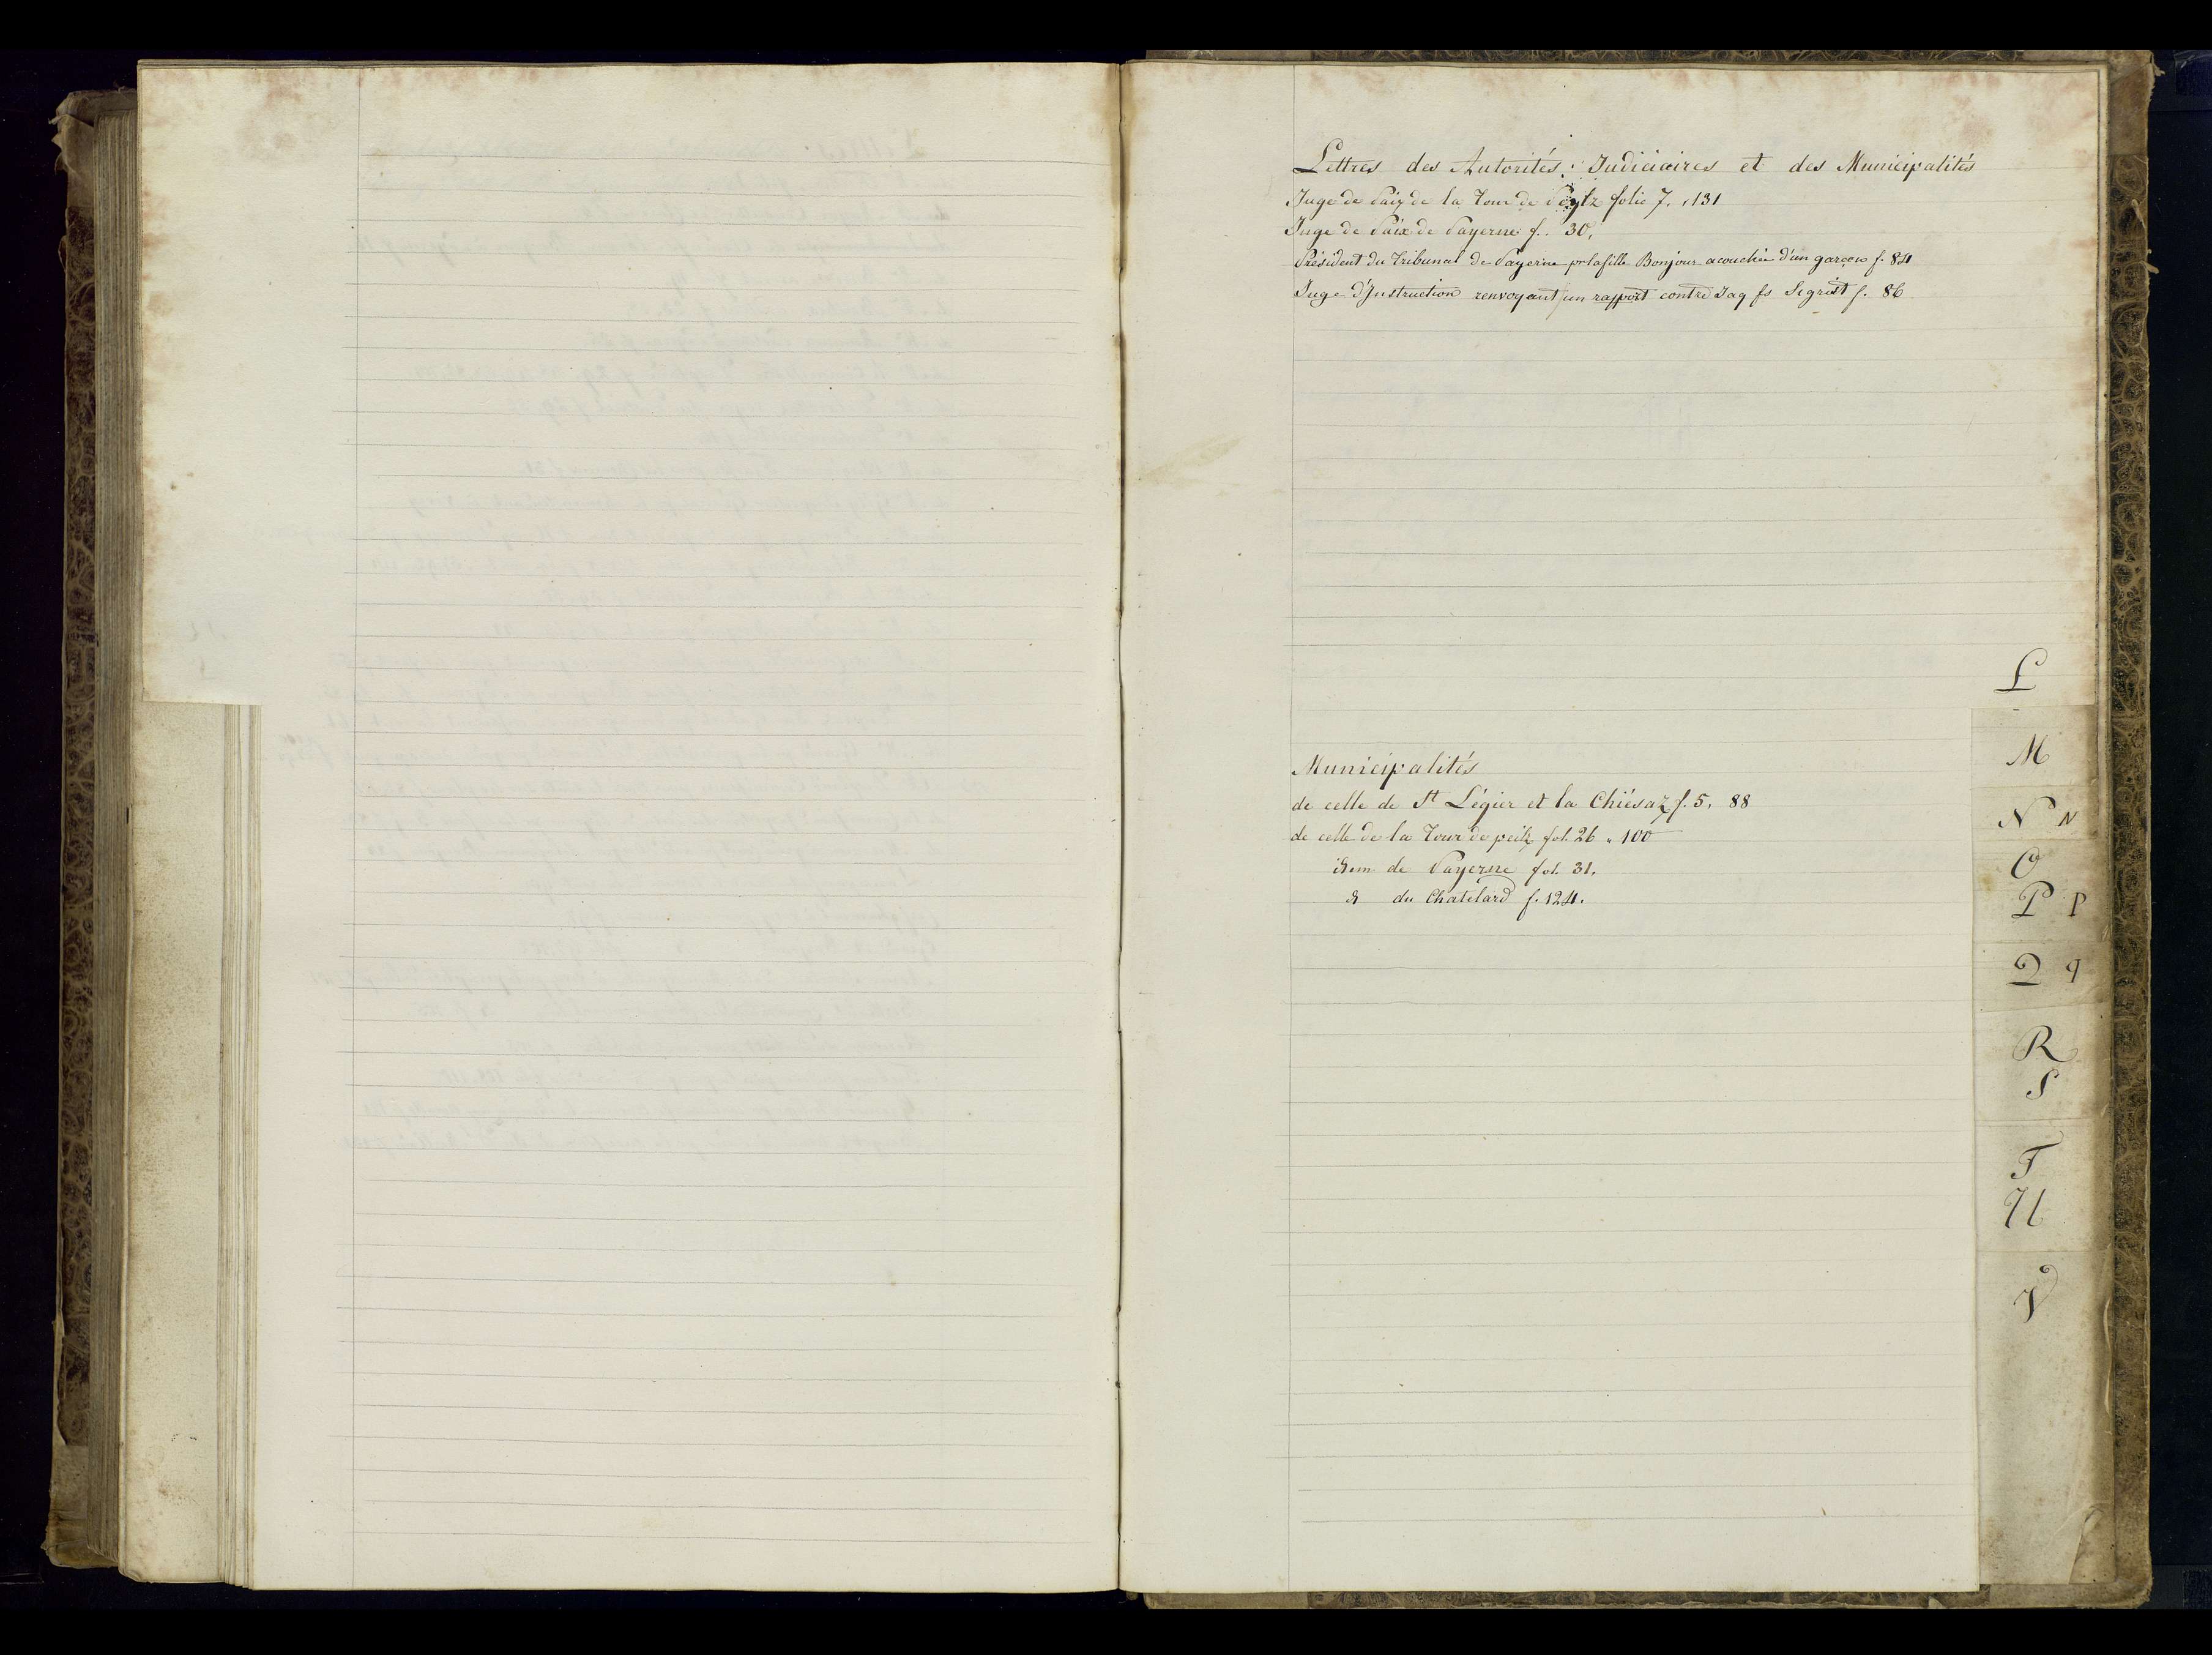 Lettres des Autorités Judiciaires et des Municipalités
Juge de Paix de la Tour de Peytz folio 7, 131
Juge de Paix de Payerne f. 30,
Président du Tribunal de Payerne pr la fille Bonjour acouchée d'un garçon f. 84
Juge d'Instruction renvoyant un rapport contre Jaq fs Segrist f. 86
L
Municipalités
de celle de St Légier et la Chiésaz f. 5, 88
de celle de la Tour de peilz fol. 26 " 100
idem de Payerne fol. 31.
du Chatelard f. 124.
M
N N
O
P P
Q q
R
S
T
U
V